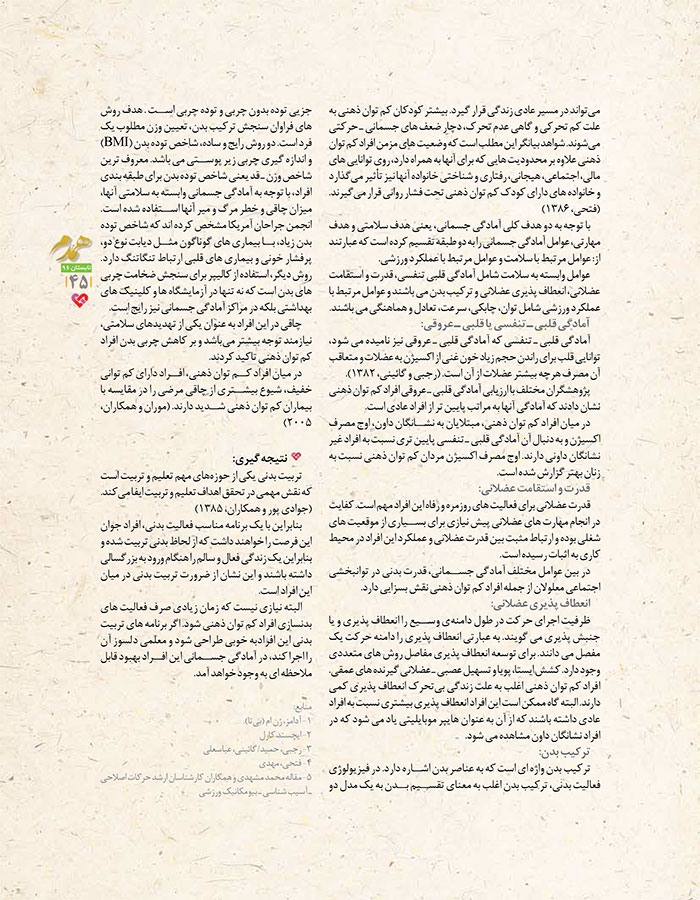 می‌تواند در مسیر عادی زندگی قرار گیرد. بیشتر کودکان کم توان ذهنی به
علت کم تحرکی و گاهی عدم تحرک، دچار ضعف‌های جسمانی ـ حرکتی
می‌شوند. شواهد بیانگر این مطلب است که وضعیت های مزمن افراد کم توان
ذهنی علاوه بر محدودیت هایی که برای آنها به همراه دارد، روی توانایی های
مالی، اجتماعی، هیجانی، رفتاری و شناختی خانواده آنها نیز تأثیر می‌گذارد
و خانواده های دارای کودک کم توان ذهنی تحت فشار روانی قرار می‌گیرند.
(فتحی، ۱۳۸۶)
با توجه به دو هدف کلی آمادگی جسمانی، یعنی هدف سلامتی و هدف
مهارتی، عوامل آمادگی جسمانی را به دو طبقه تقسیم کرده است که عبارتند
از: عوامل مرتبط با سلامت و عوامل مرتبط با عملکرد ورزشی.
عوامل وابسته به سلامت شامل آمادگی قلبی تنفسی، قدرت و استقامت
عضلانی، انعطاف پذیری عضلانی و ترکیب بدن می باشند و عوامل مرتبط با
عملکرد ورزشی شامل توان، چابکی، سرعت، تعادل و هماهنگی می باشند.
آمادگی قلبی ـ تنفسی یا قلبی ـ عروقی:
آمادگی قلبی ـ تنفسی که آمادگی قلبی ـ عروقی نیز نامیده می شود،
توانایی قلب برای راندن حجم زیاد خون غنی از اکسیژن به عضلات و متعاقب
آن مصرف هر چه بیشتر عضلات از آن است. (رجبی و گائینی، ۱۳۸۲).
پژوهشگران مختلف با ارزیابی آمادگی قلبی ـ عروقی افراد کم توان ذهنی
نشان دادند که آمادگی آنها به مراتب پایین تر از افراد عادی است.
در میان افراد کم توان ذهنی، مبتلایان به نشانگان داون، اوج مصرف
اکسیژن و به دنبال آن آمادگی قلبی ـ تنفسی پایین تری نسبت به افراد غیر
نشانگان داونی دارند. اوج مصرف اکسیژن مردان کم توان ذهنی نسبت به
زنان بهتر گزارش شده است.
قدرت و استقامت عضلانی:
قدرت عضلانی برای فعالیت های روزمره و رفاه این افراد مهم است. کفایت
در انجام مهارت های عضلانی پیش نیازی برای بسیاری از موقعیت های
شغلی بوده و ارتباط مثبت بین قدرت عضلانی و عملکرد این افراد در محیط
کاری به اثبات رسیده است.
در بین عوامل مختلف آمادگی جسمانی، قدرت بدنی در توانبخشی
اجتماعی معلولان از جمله افراد کم توان ذهنی نقش بسزایی دارد.
انعطاف پذیری عضلانی:
ظرفیت اجرای حرکت در طول دامنه‌ی وسیع را انعطاف پذیری و یا
جنبش پذیری می گویند. به عبارتی انعطاف پذیری را دامنه حرکت یک
مفصل می دانند. برای توسعه انعطاف پذیری مفاصل روش های متعددی
وجود دارد. کشش ایستا، پویا و تسهیل عصبی ـ عضلانی گیرنده های عمقی.
افراد کم توان ذهنی اغلب به علت زندگی بی‌تحرک انعطاف پذیری کمی
دارند. البته گاه ممکن است این افراد انعطاف پذیری بیشتری نسبت به افراد
عادی داشته باشند که از آن به عنوان هایپر موبایلیتی یاد می شود که در
افراد نشانگان داون مشاهده می شود.
ترکیب بدن:
ترکیب بدن واژه ای است که به عناصر بدن اشاره دارد. در فیزیولوژی
فعالیت بدنی، ترکیب بدن اغلب به معنای تقسیم بدن به یک مدل دو
جزیی توده بدون چربی و توده چربی است. هدف روش
های فراوان سنجش ترکیب بدن، تعیین وزن مطلوب یک
فرد است. دو روش رایج و ساده، شاخص توده بدن (BMI)
و اندازه گیری چربی زیر پوستی می باشد. معروف ترین
شاخص وزن ـ قد یعنی شاخص توده بدن برای طبقه بندی
افراد، با توجه به آمادگی جسمانی وابسته به سلامتی آنها،
میزان چاقی و خطر مرگ و میر آنها استفاده شده است.
انجمن جراحان آمریکا مشخص کرده اند که شاخص توده
بدن زیاد، با بیماری های گوناگون مثل دیابت نوع دو،
پرفشار خونی و بیماری های قلبی ارتباط تنگاتنگ دارد.
روش دیگر، استفاده از کالیپر برای سنجش ضخامت چربی
های بدن است که نه تنها در آزمایشگاه ها و کلینیک های
بهداشتی بلکه در مراکز آمادگی جسمانی نیز رایج است.
چاقی در این افراد به عنوان یکی از تهدیدهای سلامتی،
نیازمند توجه بیشتر می‌باشد و بر کاهش چربی بدن افراد
کم توان ذهنی تاکید کردند.
در میان افراد کم توان ذهنی، افراد دارای کم توانی
خفیف، شیوع بیشتری از چاقی مرضی را در مقایسه با
بیماران کم توان ذهنی شدید دارند. (موران و همکاران،
۲۰۰۵)
نتیجه گیری:
تربیت بدنی یکی از حوزه‌های مهم تعلیم و تربیت است
که نقش مهمی در تحقق اهداف تعلیم و تربیت ایفا می کند.
(جوادی پور و همکاران، ۱۳۸۵)
بنابراین با یک برنامه مناسب فعالیت بدنی، افراد جوان
این فرصت را خواهند داشت که از لحاظ بدنی تربیت شده و
بنابراین یک زندگی فعال و سالم را هنگام ورود به بزرگسالی
داشته باشند و این نشان از ضرورت تربیت بدنی در میان
این افراد است.
البته نیازی نیست که زمان زیادی صرف فعالیت های
بدنسازی افراد کم توان ذهنی شود. اگر برنامه های تربیت
بدنی این افراد به خوبی طراحی شود و معلمی دلسوز آن
را اجرا کند، در آمادگی جسمانی این افراد بهبود قابل
ملاحظه ای به وجود خواهد آمد.
منابع:
۱- آدامز، رْن ام (بی‌تا).
۲- ایچستد کارل
۳- رجبی، حمید/ گائینی، عباسعلی
۴- فتحی، مهدی
۵- مقاله محمد مشهدی و همکاران کارشناسان ارشد حرکات اصلاحی
ـ آسیب شناسی ـ بیومکانیک ورزشی
همدم
تابستان ۹۶
۴۵